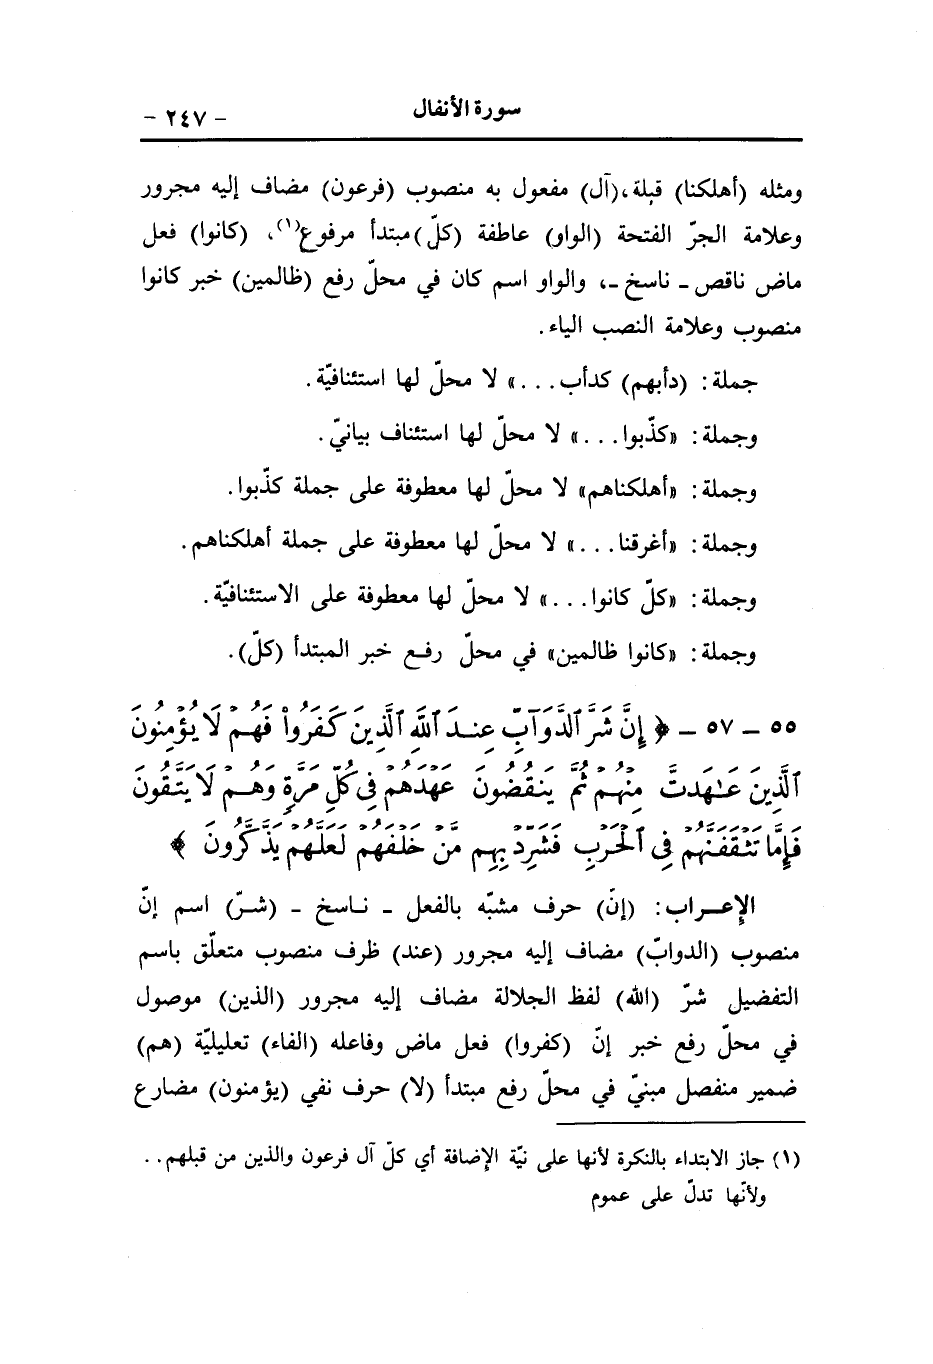 سورة الأنفال
- ٢٤٧ -
ومثله (أهلكنا) قبلة،(آل) مفعول به منصوب (فرعون) مضاف إليه مجرور
وعلامة الجرّ الفتحة (الواو) عاطفة (كلّ)مبتدأ مرفوع(١)، (كانوا) فعل
ماض ناقص ـ ناسخ ـ، والواو اسم كان في محلّ رفع (ظالمين) خبر كانوا
منصوب وعلامة النصب الياء.
جملة: (دأبهم) كدأب...» لا محلّ لها استئنافيّة.
وجملة: «كذّبوا...» لا محلّ لها استئناف بيانيّ.
وجملة: «أهلكناهم» لا محلّ لها معطوفة على جملة كذّبوا.
وجملة: «أغرقنا...» لا محلّ لها معطوفة على جملة أهلكناهم.
وجملة: «كلّ كانوا...» لا محلّ لها معطوفة على الاستئنافيّة.
وجملة: «كانوا ظالمين» في محلّ رفع خبر المبتدأ (كلّ).
٥٥ ـ ٥٧ ـ ﴿ إِنَّ شَرَّ ٱلدَّوَآبِّ عِندَ ٱللَّهِ ٱلَّذِينَ كَفَرُواْ فَهُمْ لَا يُؤْمِنُونَ
ٱلَّذِينَ عَٰهَدتَّ مِنْهُمْ ثُمَّ يَنقُضُونَ عَهْدَهُمْ فِى كُلِّ مَرَّةٍ وَهُمْ لَا يَتَّقُونَ
فَإِمَّا تَثْقَفَنَّهُمْ فِى ٱلْحَرْبِ فَشَرِّدْ بِهِم مَّنْ خَلْفَهُمْ لَعَلَّهُمْ يَذَّكَّرُونَ ﴾
الإعـراب: (إنّ) حرف مشبّه بالفعل ـ ناسخ ـ (شرّ) اسم إنّ
منصوب (الدوابّ) مضاف إليه مجرور (عند) ظرف منصوب متعلّق باسم
التفضيل شرّ (الله) لفظ الجلالة مضاف إليه مجرور (الذين) موصول
في محلّ رفع خبر إنّ (كفروا) فعل ماض وفاعله (الفاء) تعليليّة (هم)
ضمير منفصل مبنيّ في محلّ رفع مبتدأ (لا) حرف نفي (يؤمنون) مضارع
(١) جاز الابتداء بالنكرة لأنها على نيّة الإضافة أي كلّ آل فرعون والذين من قبلهم..
ولأنّها تدلّ على عموم